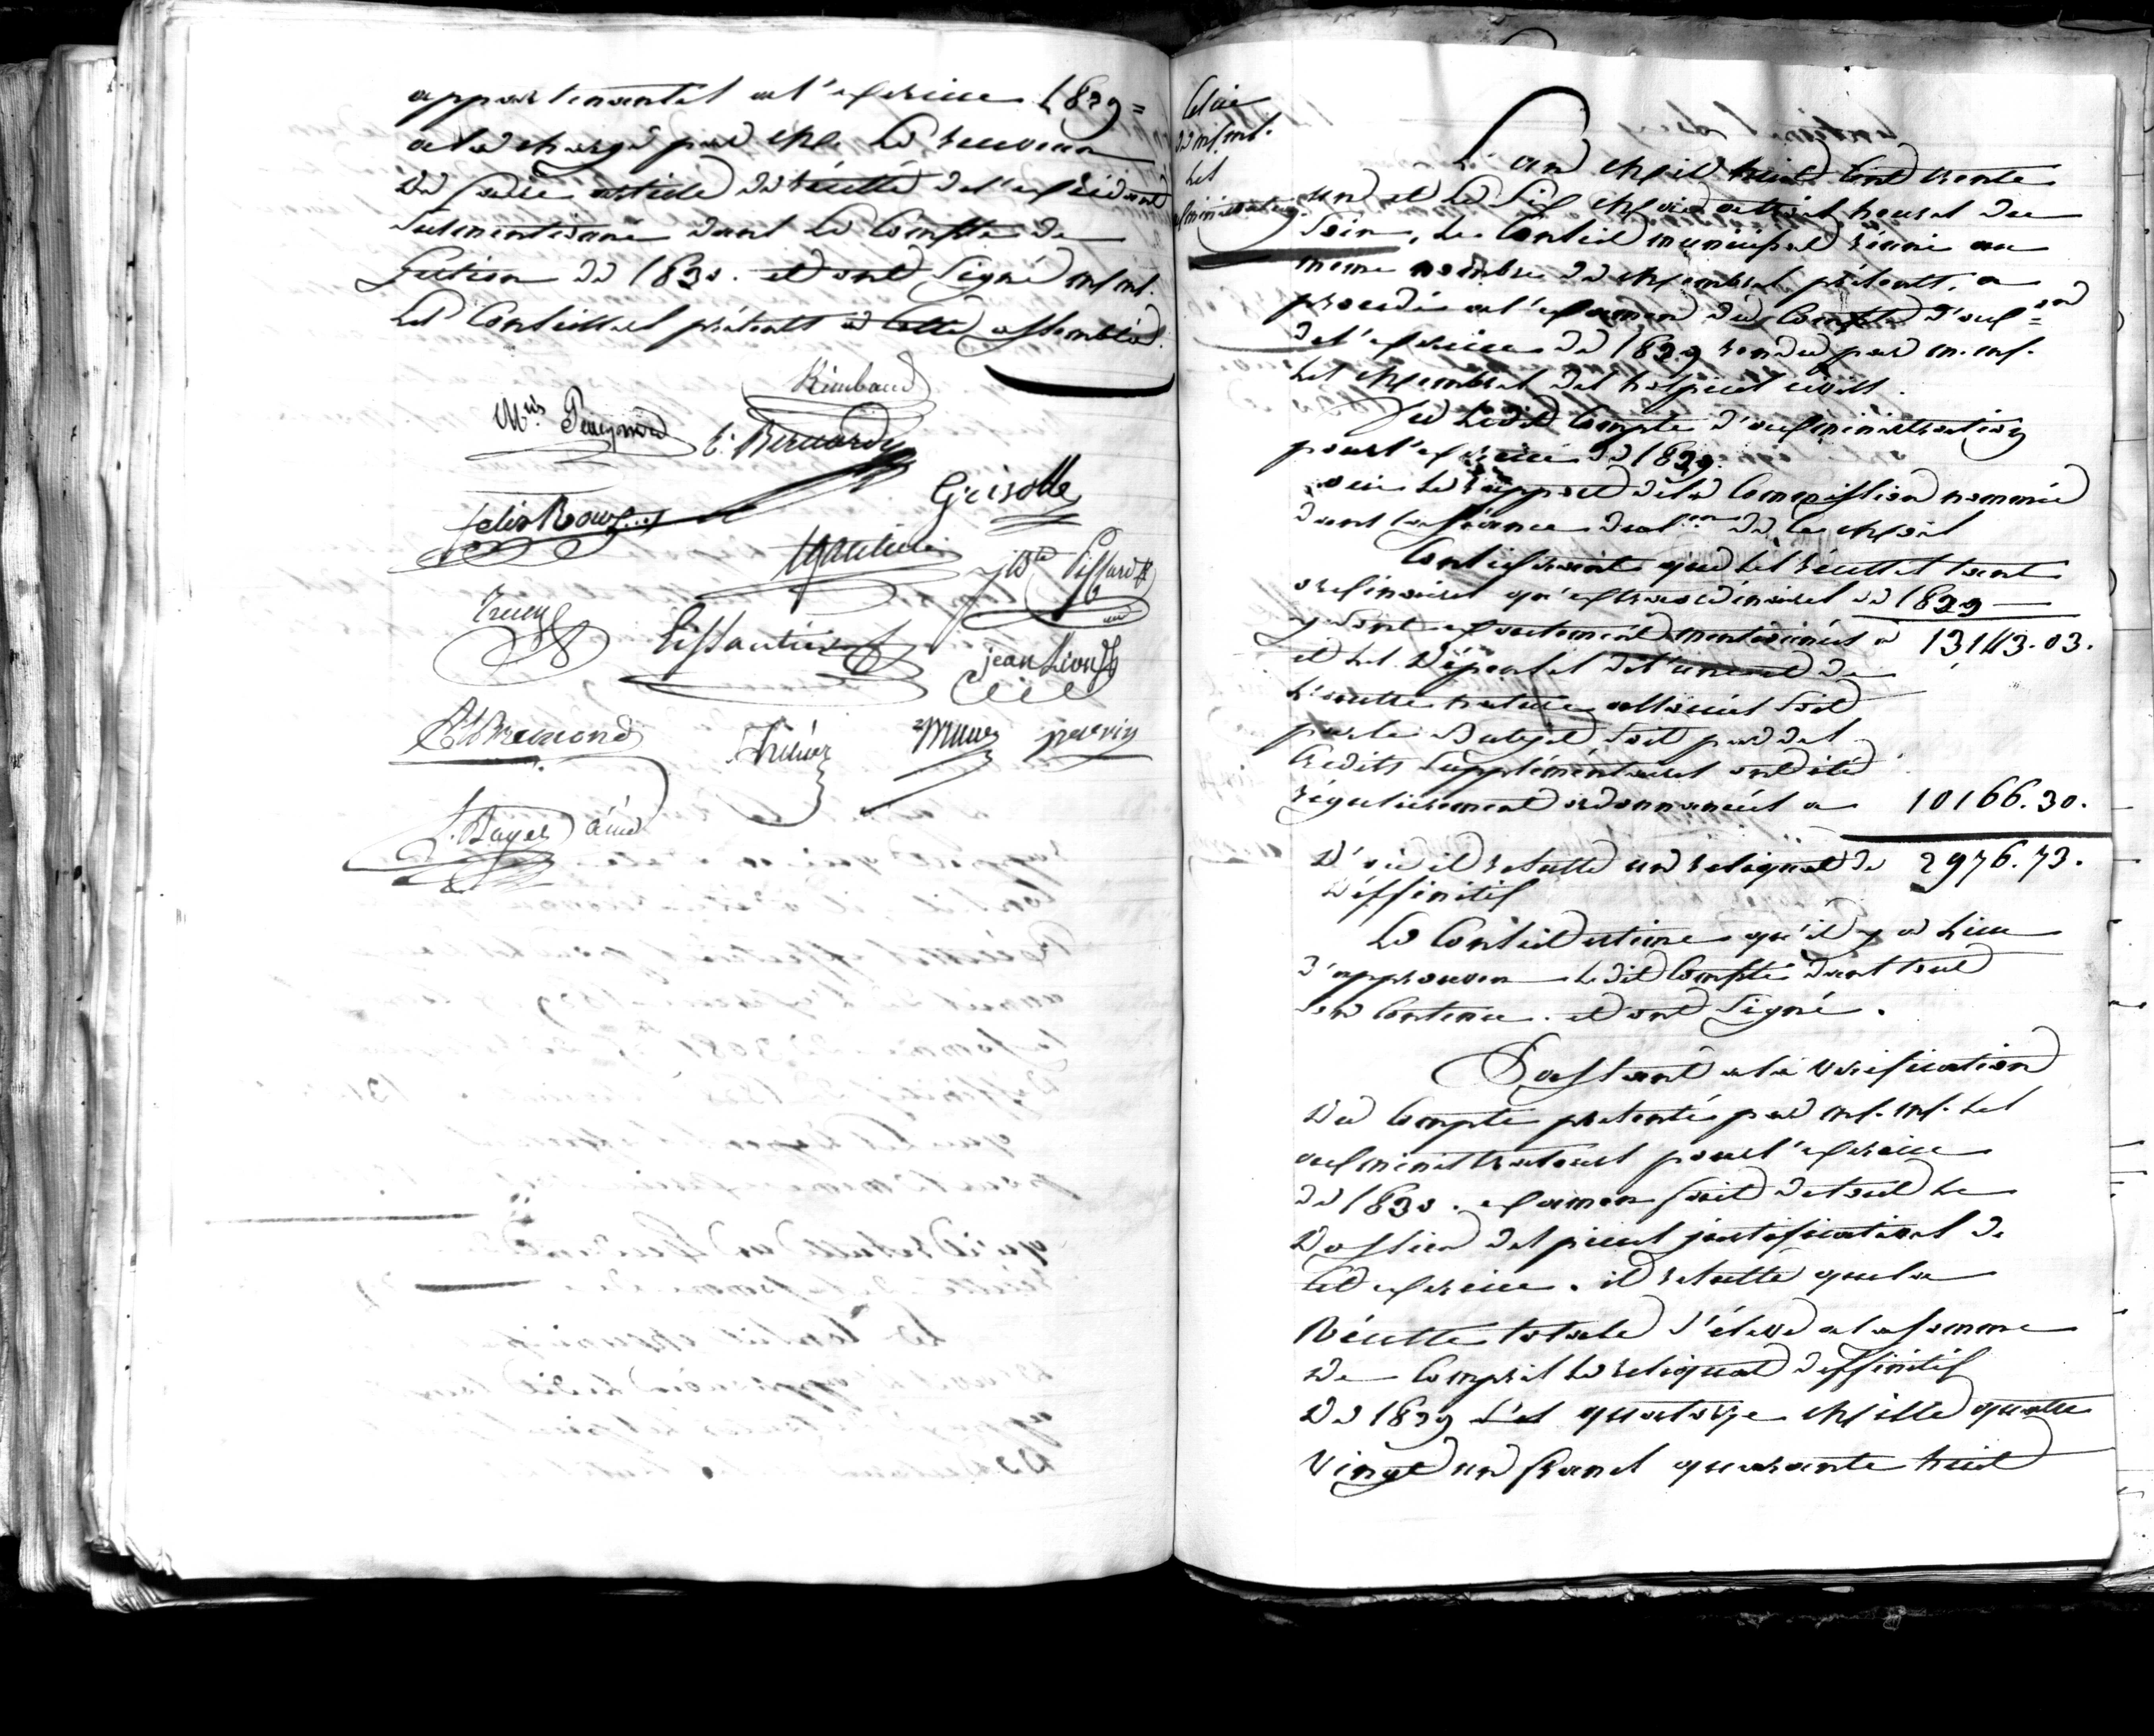 appartenantes a l'exercice 1829=
a la charge par Mr le Receveur
de faire article de récette de l'excédant
susmentionné dans le Compte de
Gestion de 1830. et ont signé M.M.
les Conseillers présents a cette assemblée.
Rimbaud
Mis Peyronnd
E. Bernardy
felix Roux
Grisolle
Jh Bte Pissard
Trucy
Lissautier
jean Lions
Bremond
mure
L. Bayer ainé
Celui
de M.M.
les
administrateurs
L'an Mil huit Cent trente
un et le six Mai a trois heures du
Soir, le Conseil municipal réuni au
meme nombre de Membres présents, a
procédé a l'examen du Compte d'adon
de l'exercice de 1829 rendu par M.M.
les Membres des hospices civils.
Vu ledit Compte d'administration
pour l'exercice de 1829.
oui le rapport de la Commission nommée
dans la séance du 1er de ce Mois
Considérant que les récettes tant
ordinaires qu'extraordinaires de 1829
y sont exactement mentionnées a 13143.03.
et les Dépenses de l'une et de
l'autre nature allouées soit
par le Budget soit par des
Crédits Supplémentaires ont été
régulierement ordonnancées a 10166.30.
D'ou il resulte un reliquat de 2976.73.
Déffinitif
Le Conseil estime qu'il y a lieu
d'approuver ledit Compte dans tout
son Contenu. et ont Signé.
Passant a la vérification
du Compte présenté par M.M. les
administrateurs pour l'exercice
de 1830. examen fait de tout le
Dossier des pieces justificatives de
cet exercice. il resulte que la
Récette totale s'éleve a la somme
de Compris le reliquat deffinitif
de 1829 est quatorze Mille quatre
Vingt un francs quarante huit